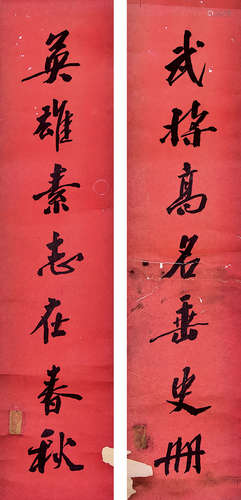 武将高名垂史册
英雄素志在春秋